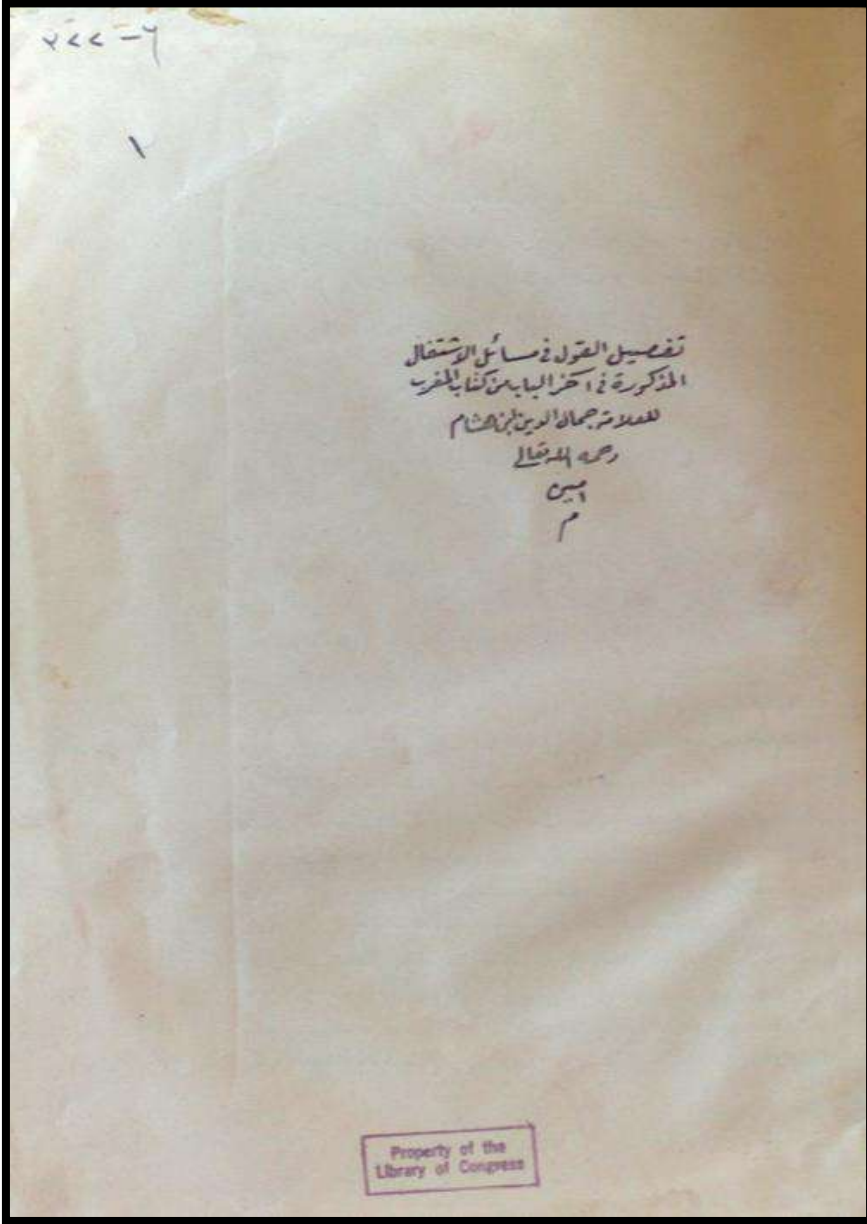 ٦ - ٢٧٧
١
تفصيل القول في مسائل الاشتغال
المذكورة في اخر الباب من كتاب المقرب
للعلامة جمال الدين ابن هشام
رحمه الله تعالى
امين
م
Property of the
Library of Congress